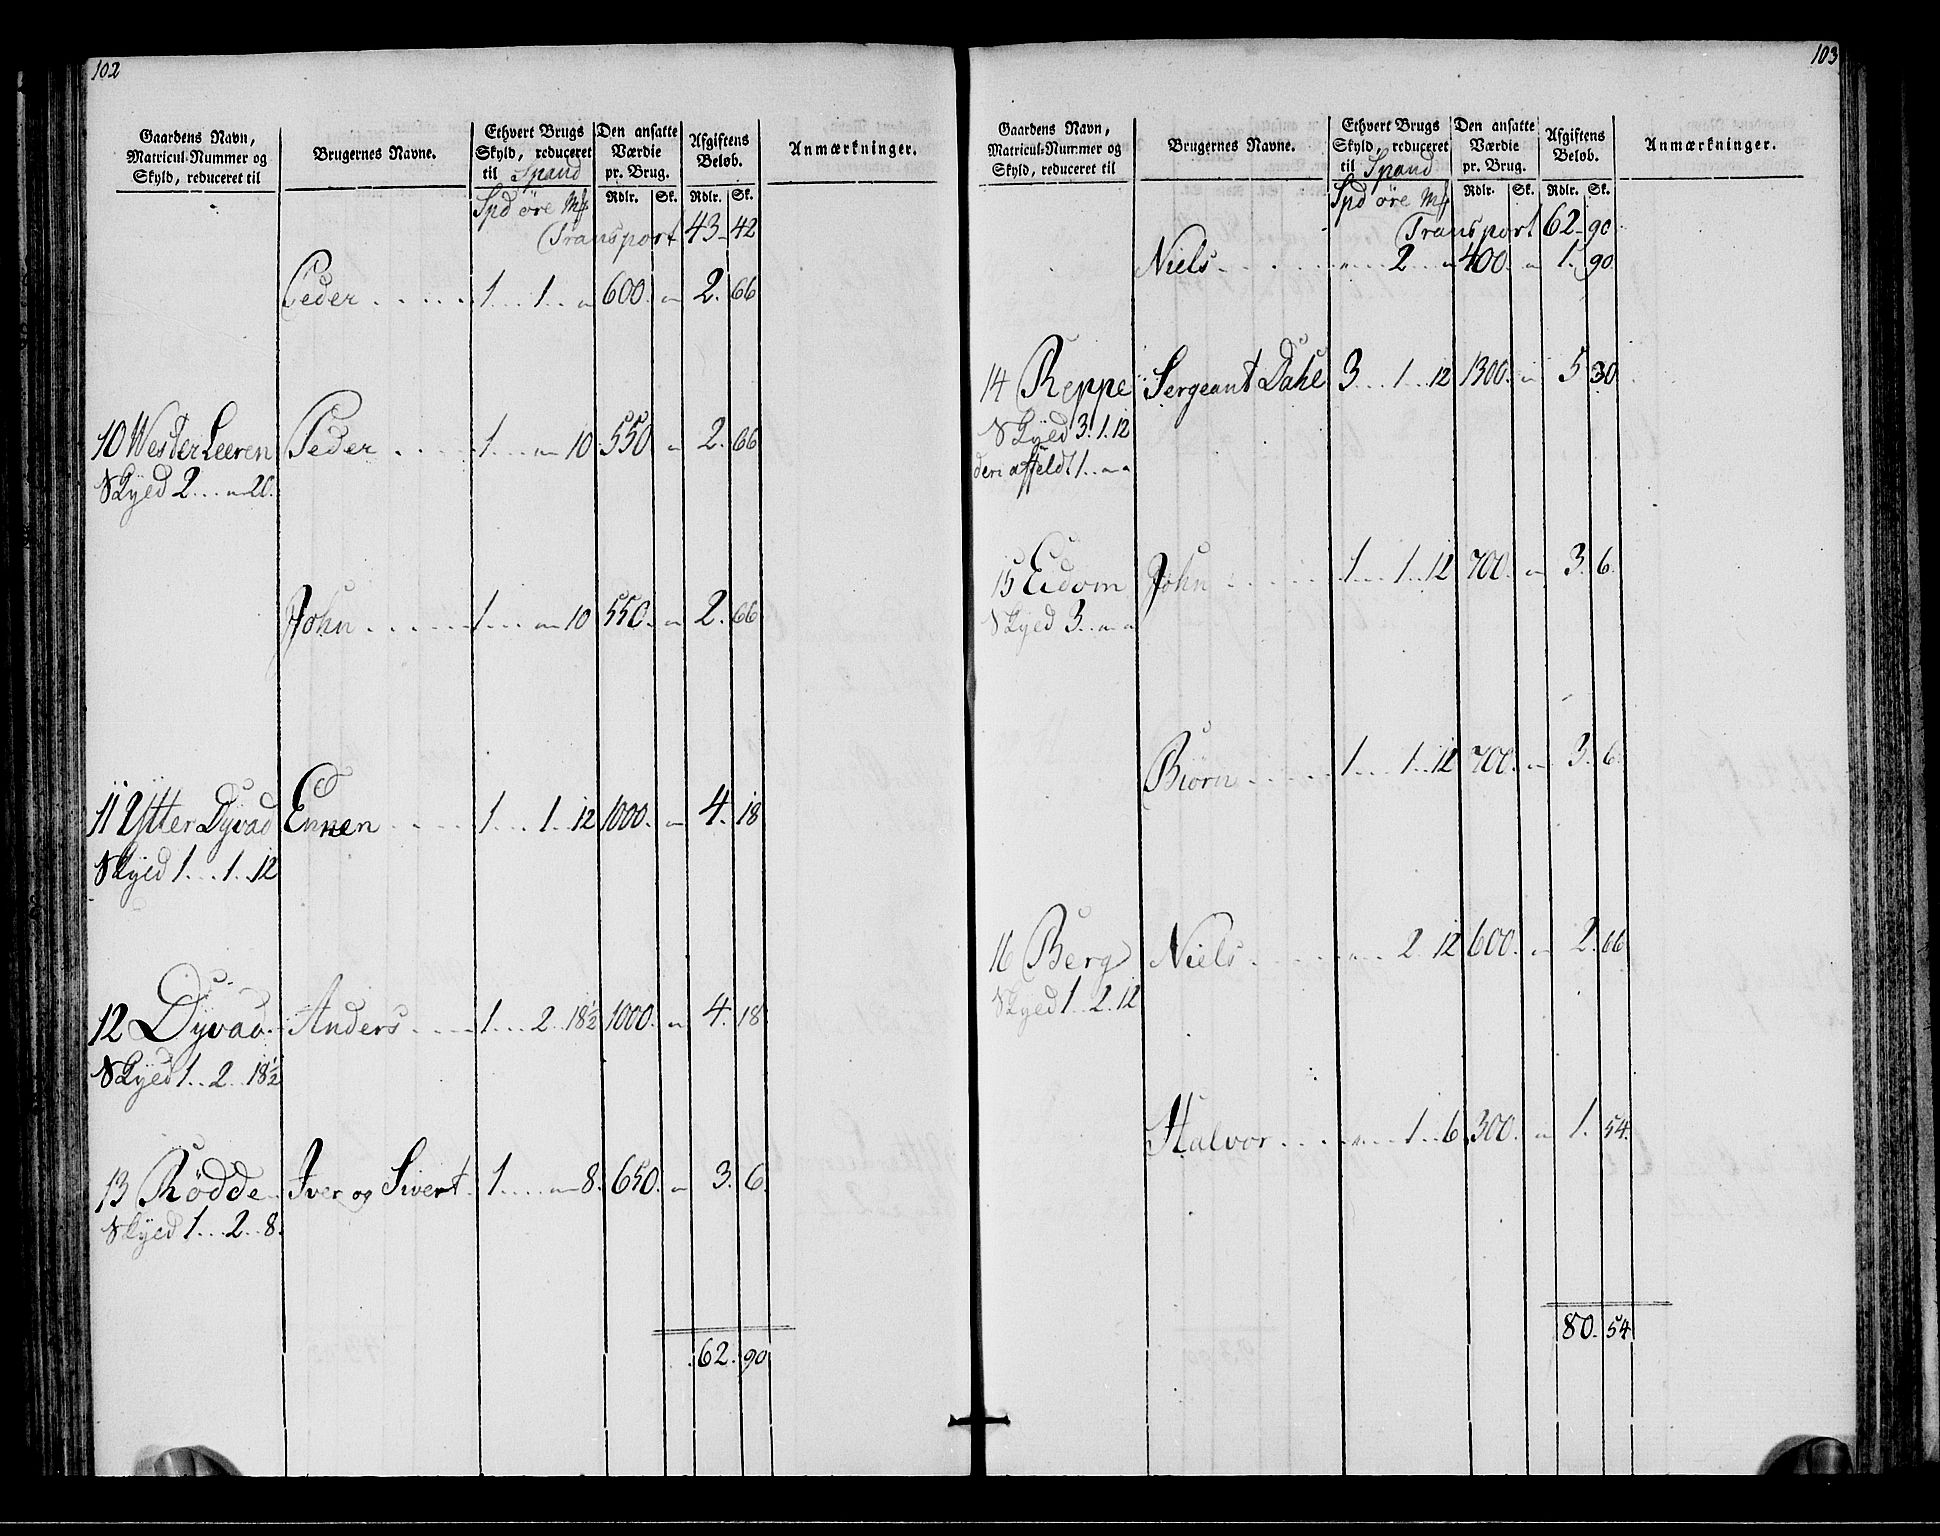 102
Gaardens Navn, Matricul-Nummer og Skyld, reduceret til
Brugernes Navne.
Ethvert Brugs Skyld, reduceret til Spand
Den ansatte Værdie pr. Brug.
Afgiftens Beløb.
Anmærkninger.
Spd øre Mf Rdlr. Sk. Rdlr. Sk.
Transport 43 - 42
Peder . . . . . 1 . . . 1 . . " 600. " 2. 66
10 Wester Leeren Peder . . . . 1 . . . " 10. 550 " 2. 66
Skyld 2 . . . " 20.
John . . . . . 1 . . . " 10 550. " 2. 66
11 Ytter Dyvad Ennen . . . . 1 . . . 1. 12 1000. " 4. 18
Skyld 1 . . . 1 . . 12
12 Dyvad Anders . . . . 1 . . . 2 . . 18½ 1000. " 4. 18
Skyld 1 . . 2 . . 18½
13 Rödde Iver og Sivert. 1 . . . . " 8. 650. " 3. 6.
Skyld 1 . . . 2 . . 8.
62. 90
103
Gaardens Navn, Matricul-Nummer og Skyld, reduceret til
Brugernes Navne.
Ethvert Brugs Skyld, reduceret til Spand
Den ansatte Værdie pr. Brug.
Afgiftens Beløb.
Anmærkninger.
Spd øre Mf Rdlr. Sk. Rdlr. Sk.
Transport 62 - 90
Niels . . . . . " . . 2 . . " 400. " 1. 90.
14 Reppe Sergeant Dahl 3 . . . 1 . . 12 1300. " 5 30
Skyld 3. 1. 12
deraf feldt 1 . . " "
15 Eidom John . . . . . 1 . . . 1 . . 12 700. " 3. 6.
Skyld 3. . " "
Biörn . . . . . 1 . . . 1 . . 12 700. " 3. 6.
16 Berg Niels . . . . . " . . 2. 12 600. " 2. 66
Skyld 1 . . 2. 12
Halvor . . . . " . . 1 . . 6. 300. " 1. 54.
80. 54